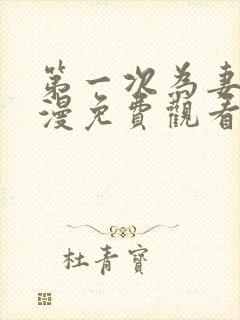 第一次為妻
漫免費觀看
杜青寶